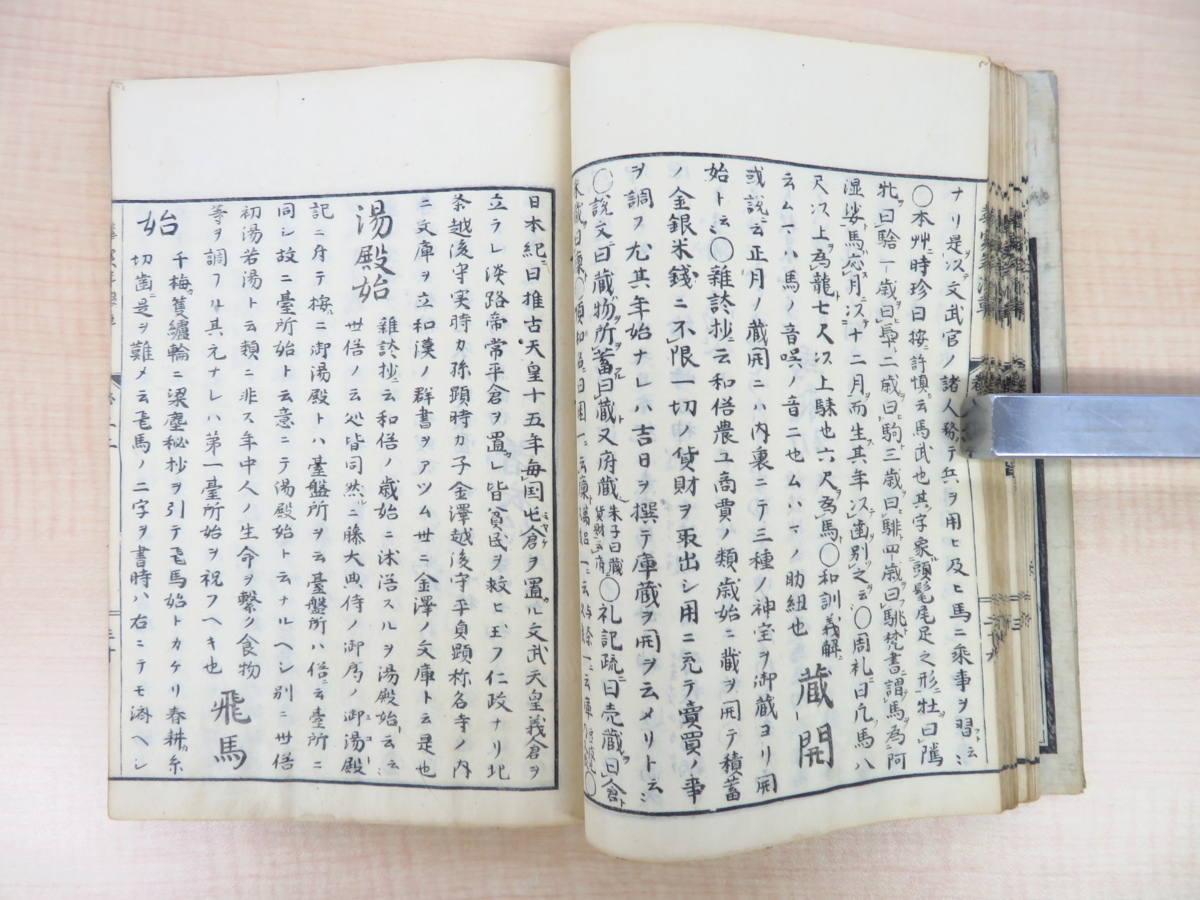 ナリ是ヲ以文武官ノ諸人務テ兵ヲ用ヒ及ヒ馬ニ乗事ヲ習云云
〇本艸ニ時珍曰按許慎云馬武也其字象頭髦尾足之形牡曰隲
牝曰騇一歳曰馵二歳曰駒三歳曰騑四歳曰駣梵書謂馬為阿
湿娑馬応月以十二月而生其年以歯別之云〇周礼曰凡馬八
尺以上為龍七尺以上騋也六尺為馬〇和訓義解
云ムマハ馬ノ音呉ノ音ニ也ムハマノ助組也 蔵開
或説ニ云正月ノ蔵開ニハ内裏ニテ三種ノ神宝ヲ御蔵ヨリ開
始ト云〇雑談抄ニ云和俗農工商賈ノ類歳始ニ蔵ヲ開テ積蓄
ノ金銀米銭ニ不限一切ノ貨財ヲ取出シ用ニ充テ賣買ノ事
ヲ調フ尤其年始ナレハ吉日ヲ撰テ庫蔵ヲ開ヲ云メリト云云
〇説文曰蔵物所蓄曰蔵又府蔵朱子曰蔵貨財云府〇礼記疏曰売蔵曰倉
日本紀ニ曰推古天皇十五年毎国屯倉ヲ置ル文武天皇義倉ヲ
立ラレ淡路帝常平倉ヲ置レ皆貧民ヲ救ヒ玉フ仁政ナリ北
条越後守実時カ孫顕時カ子金澤越後守平貞顕称名寺ノ内
ニ文庫ヲ立和漢ノ群書ヲアツム世ニ金澤ノ文庫ト云是也
湯殿始 雑談抄ニ云和俗ノ歳始ニ沐浴スルヲ湯殿始云云
世俗ノ云処皆同然ニ藤大典侍ノ御局ノ御湯殿
記ニ有テ梅ニ御湯殿トハ臺盤所ヲ云臺盤所ハ俗ニ云臺所ニ
同シ故ニ臺所始ト云意ニテ湯殿始ト云ナルヘシ別ニ世俗
初湯若湯ト云類ニ非ス年中人ノ生命ヲ繋ク食物
等ヲ調フル其元ナレハ第一臺所始ヲ祝フヘキ也 飛馬
始 千梅篗纑輪ニ梁塵秘抄ヲ引テ飛馬始トカケリ春耕ニ糸
切歯ニ是ヲ難メ云飛馬ノ二字ヲ書時ハ右ニテモ済ヘシ